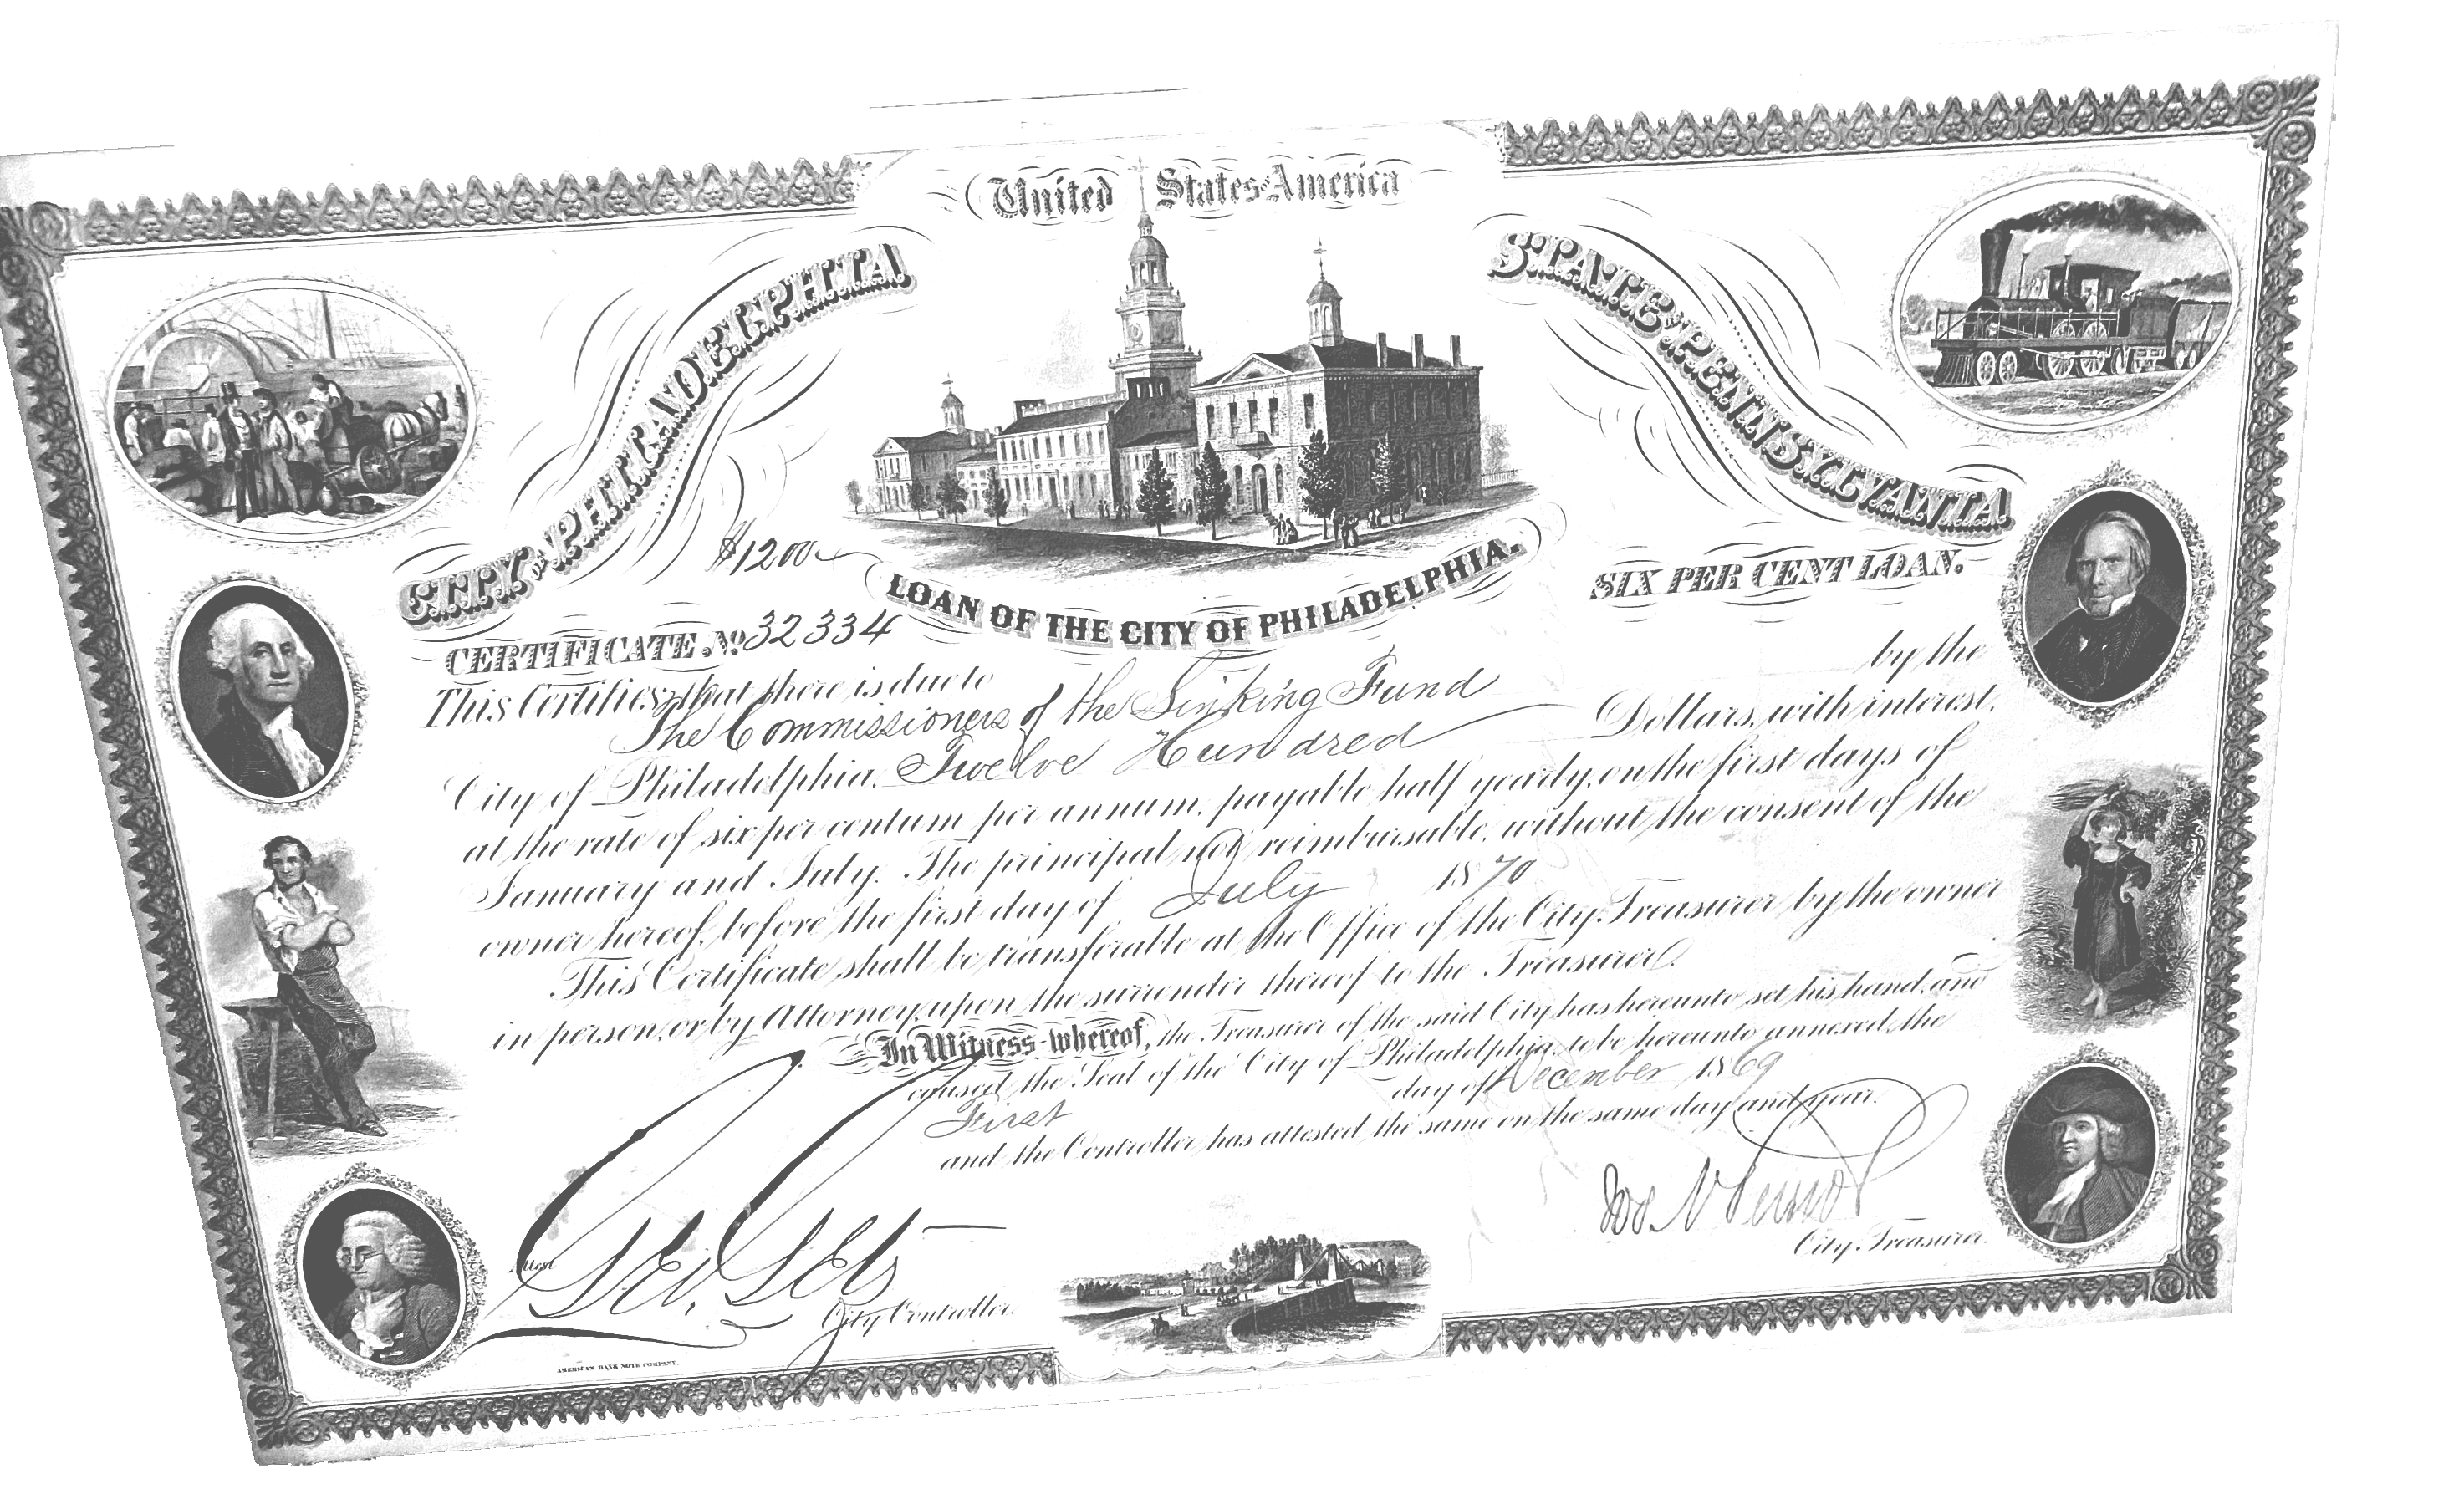 United States of America
CITY OF PHILADELPHIA
STATE OF PENNSYLVANIA
$1200
LOAN OF THE CITY OF PHILADELPHIA.
SIX PER CENT LOAN.
CERTIFICATE No. 32334
This Certifies that there is due to
The Commissioners of the Sinking Fund by the
City of Philadelphia, Twelve Hundred Dollars, with interest,
at the rate of six per centum per annum, payable half yearly, on the first days of
January and July. The principal not reimbursable, without the consent of the
owner hereof, before the first day of July 1870
This Certificate shall be transferable at the Office of the City Treasurer by the owner
in person, or by Attorney, upon the surrender thereof to the Treasurer.
In Witness whereof, the Treasurer of the said City has hereunto set his hand, and
caused the Seal of the City of Philadelphia, to be hereunto annexed, the
First day of December 1869
and the Controller has attested the same on the same day and year.
Attest
City Controller.
City Treasurer.
AMERICAN BANK NOTE COMPANY.